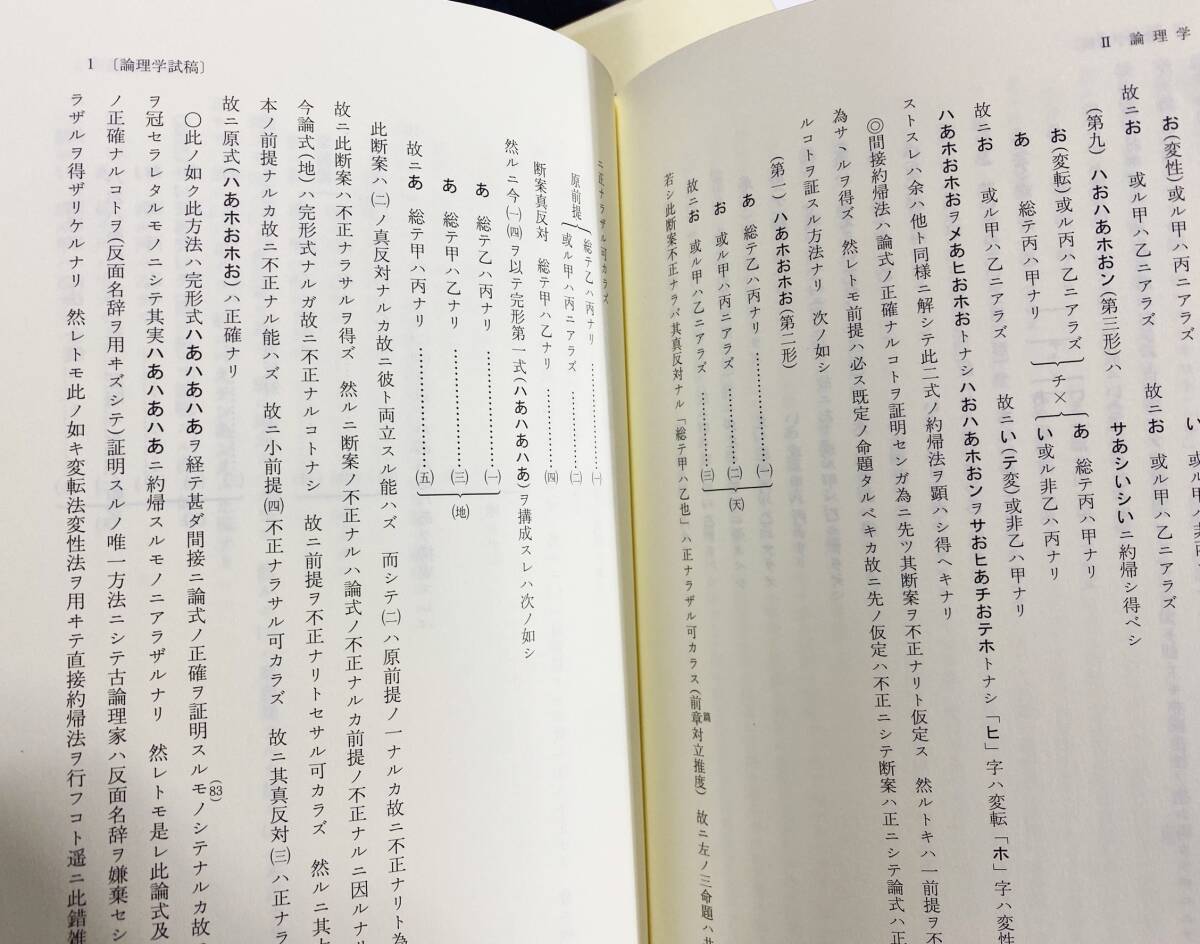 Ⅱ 論理学
お(変性)或ル甲ハ丙ニアラズ
故ニお 或ル甲ハ乙ニアラズ
故ニお 或ル甲ハ乙ニアラズ
(第九) ハおハあホおン(第三形)ハ
サあシいシいニ約帰シ得ベシ
お(変転)或ル丙ハ乙ニアラズ
あ 総テ丙ハ甲ナリ
チ×
あ 総テ丙ハ甲ナリ
い或ル非乙ハ丙ナリ
故ニお 或ル甲ハ乙ニアラズ
故ニい(テ変)或非乙ハ甲ナリ
ハあホおホおヲメあヒおホおトナシハおハあホおンヲサおヒあチおテホトナシ「ヒ」字ハ変転「ホ」字ハ変性
ストスレハ余ハ他ト同様ニ解シテ此二式ノ約帰法ヲ顕ハシ得ヘキナリ
◎間接約帰法ハ論式ノ正確ナルコトヲ証明センガ為ニ先ツ其断案ヲ不正ナリト仮定ス 然ルトキハ一前提ヲ不
為サヽルヲ得ズ 然レトモ前提ハ必ス既定ノ命題タルベキカ故ニ先ノ仮定ハ不正ニシテ断案ハ正ニシテ論式ハ正
ルコトヲ証スル方法ナリ 次ノ如シ
(第一) ハあホおホお(第二形)
あ 総テ乙ハ丙ナリ ……………(一)
お 或ル甲ハ丙ニアラズ ……………(二)
故ニお 或ル甲ハ乙ニアラズ ……………(三)
(天)
若シ此断案不正ナラバ其真反対ナル「総テ甲ハ乙也」ハ正ナラザル可カラス(前章篇対立推度) 故ニ左ノ三命題ハ共
1 〔論理学試稿〕
ニ正ナラザル可カラズ
原前提
総テ乙ハ丙ナリ ……………(一)
或ル甲ハ丙ニアラズ ……………(二)
断案真反対 総テ甲ハ乙ナリ ……………(四)
然ルニ今(一)(四)ヲ以テ完形第一式(ハあハあハあ)ヲ構成スレハ次ノ如シ
あ 総テ乙ハ丙ナリ ……………(一)
あ 総テ甲ハ乙ナリ ……………(三)
故ニあ 総テ甲ハ丙ナリ ……………(五)
(地)
此断案ハ(二)ノ真反対ナルカ故ニ彼ト両立スル能ハズ 而シテ(二)ハ原前提ノ一ナルカ故ニ不正ナリト為
故ニ此断案ハ不正ナラサルヲ得ズ 然ルニ断案ノ不正ナルハ論式ノ不正ナルカ前提ノ不正ナルニ因ルナリ
今論式(地)ハ完形式ナルガ故ニ不正ナルコトナシ 故ニ前提ヲ不正ナリトセサル可カラズ 然ルニ其大
本ノ前提ナルカ故ニ不正ナル能ハズ 故ニ小前提(四)不正ナラサル可カラズ 故ニ其真反対(三)ハ正ナラ
故ニ原式(ハあホおホお)ハ正確ナリ
○此ノ如ク此方法ハ完形式ハあハあハあヲ経テ甚ダ間接ニ論式ノ正確ヲ証明スルモノシテナルカ故
(83)
ヲ冠セラレタルモノニシテ其実ハあハあハあニ約帰スルモノニアラザルナリ 然レトモ是レ此論式及
ノ正確ナルコトヲ(反面名辞ヲ用ヰズシテ)証明スルノ唯一方法ニシテ古論理家ハ反面名辞ヲ嫌棄セシ
ラザルヲ得ザリケルナリ 然レトモ此ノ如キ変転法変性法ヲ用ヰテ直接約帰法ヲ行フコト遥ニ此錯雑